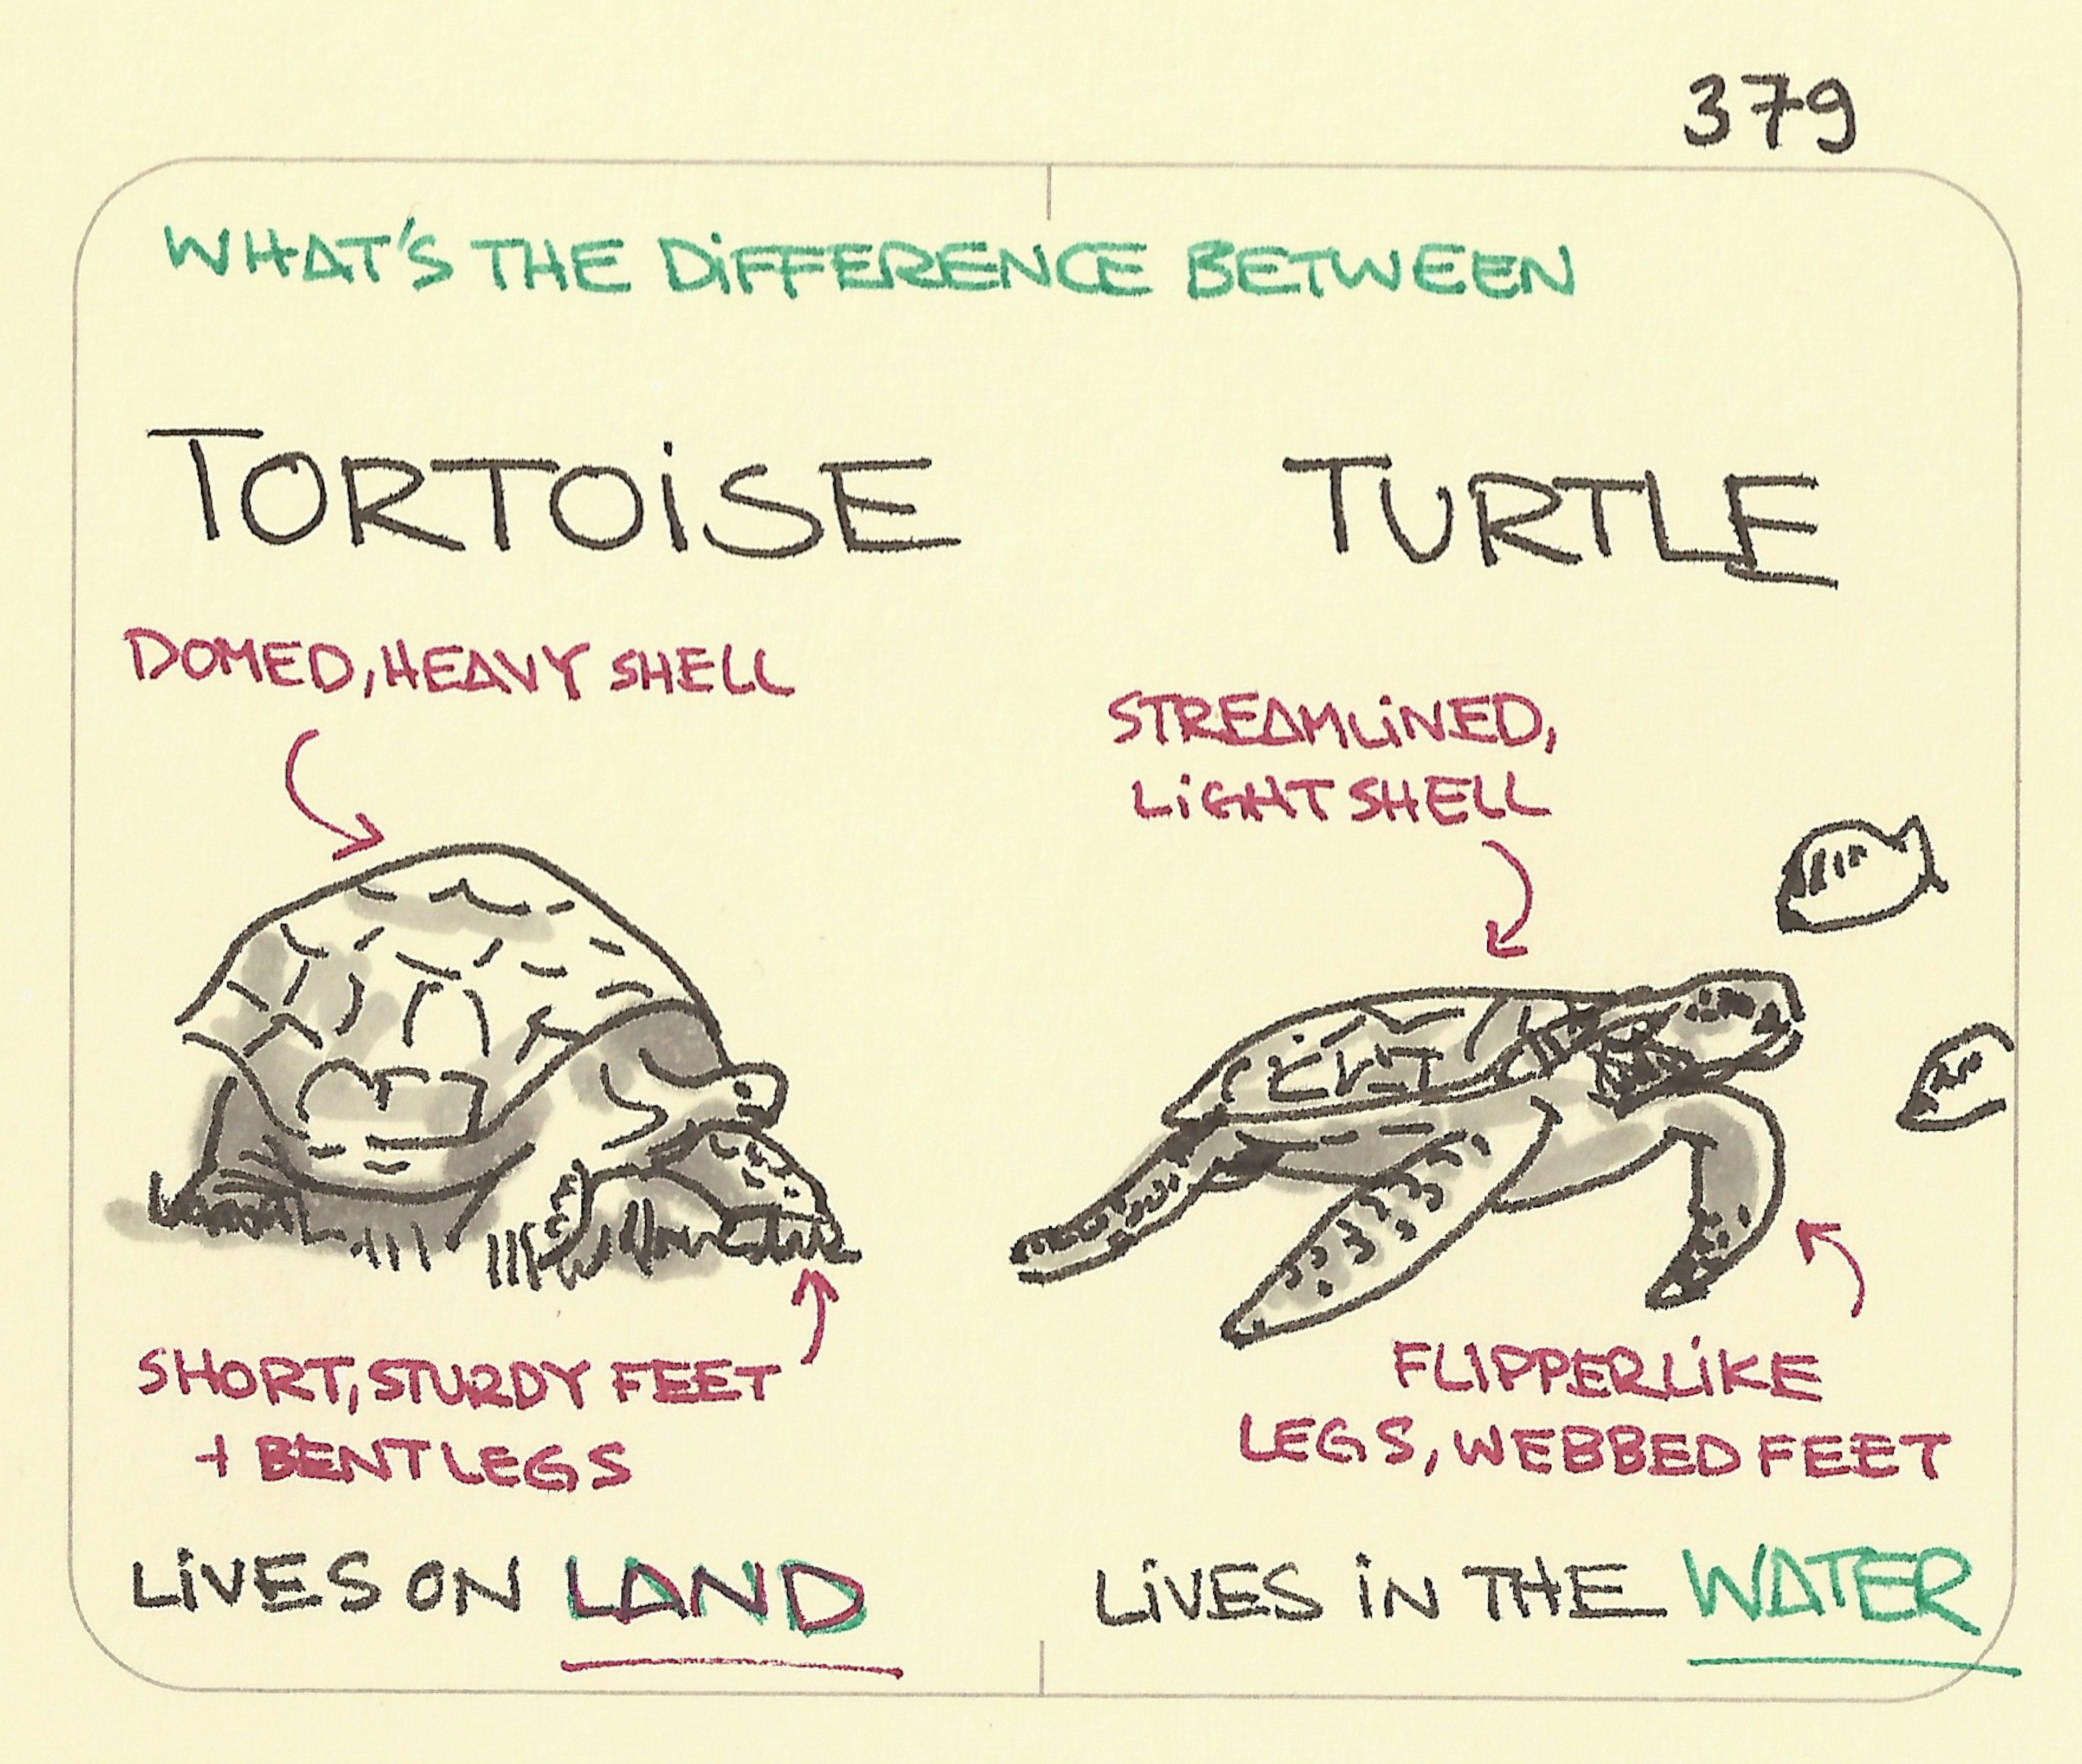 379
WHAT'S THE DIFFERENCE BETWEEN
TORTOISE
DOMED, HEAVY SHELL
SHORT, STURDY FEET
+ BENT LEGS
LIVES ON LAND
TURTLE
STREAMLINED,
LIGHT SHELL
FLIPPERLIKE
LEGS, WEBBED FEET
LIVES IN THE WATER